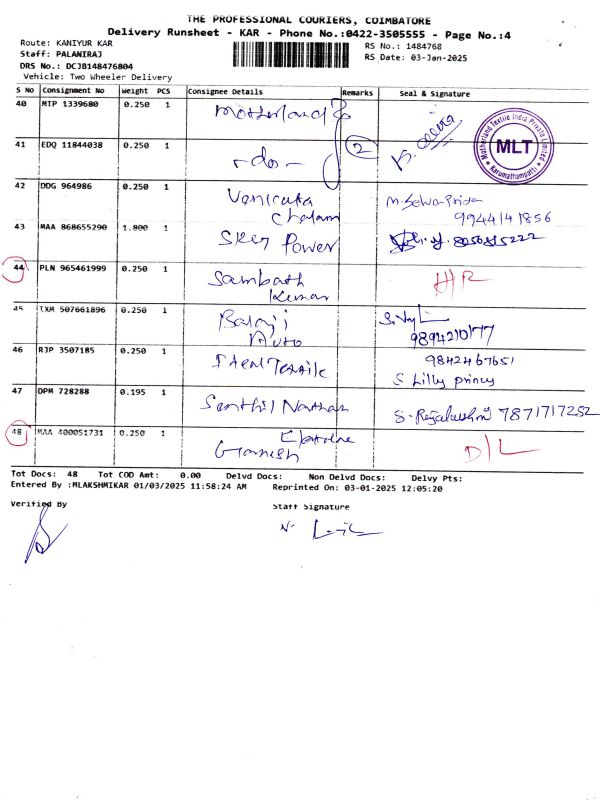 THE PROFESSIONAL COURIERS, COIMBATORE
Delivery Runsheet - KAR - Phone No.:0422-3505555 - Page No.:4
Route: KANIYUR KAR
RS No.: 1484768
Staff: PALANIRAJ
RS Date: 03-Jan-2025
DRS No.: DCJB148476804
Vehicle: Two Wheeler Delivery
S No Consignment No Weight PCS Consignee Details Remarks Seal & Signature
40 MTP 1339680 0.250 1 Motherland
41 EDQ 11844038 0.250 1 - do - 2
Motherland Textile India Private Limited
MLT
Karumathampatti
42 DDG 964986 0.250 1 Venkata Chalam M. Selva Priya
9944141856
43 MAA 868655290 1.800 1 Sken Power 8056815222
44 PLN 965461999 0.250 1 Sambath Kumar H/R
45 TXM 507661896 0.250 1 Balaji Auto
9894210177
46 RJP 3507185 0.250 1 Textile 9842467651
S Lilly princy
47 DPM 728288 0.195 1 Senthil Nathan S. Rajalakshmi 7871717252
48 MAA 400051731 0.250 1 Ganesh D/L
Tot Docs: 48 Tot COD Amt: 0.00 Delvd Docs: Non Delvd Docs: Delvy Pts:
Entered By :MLAKSHMIKAR 01/03/2025 11:58:24 AM Reprinted On: 03-01-2025 12:05:20
Verified By
Staff Signature